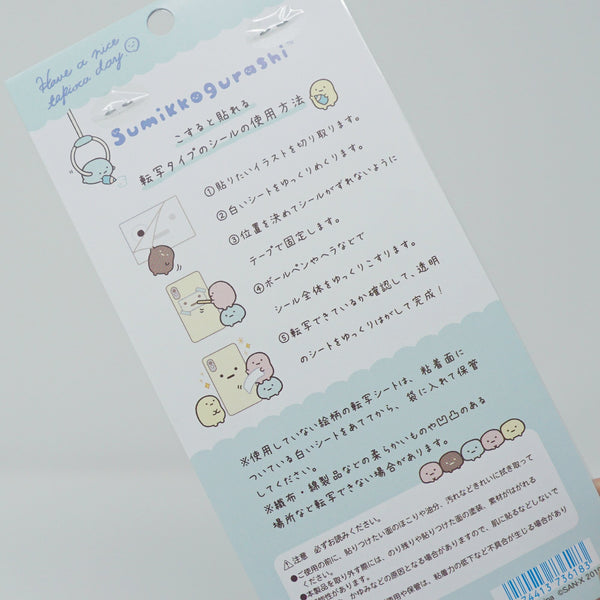 Have a nice
tapioca day
Sumikkogurashi™
こすると貼れる
転写タイプのシールの使用方法
①貼りたいイラストを切り取ります。
②白いシートをゆっくりめくります。
③位置を決めてシールがずれないように
テープで固定します。
④ボールペンやヘラなどで
シール全体をゆっくりこすります。
⑤転写できているか確認して、透明
のシートをゆっくりはがして完成!
※使用していない絵柄の転写シートは、粘着面に
ついている白いシートをあててから、袋に入れて保管
してください。
※織布・綿製品などの柔らかいものや凹凸のある
場所など転写できない場合があります。
⚠注意 必ずお読みください。
●ご使用の前に、貼りつけたい面のほこりや油分、汚れなどきれいに拭き取って
ください。
●本製品を取り外す際には、のり残りや貼りつけた面の塗装、素材がはがれる
可能性があります。
かゆみなどの原因となる場合がありますので、肌に貼るなどしないで
使用や保管は、粘着力の低下など不具合が生じる場合があり
6413 736183
©SAN-X 201